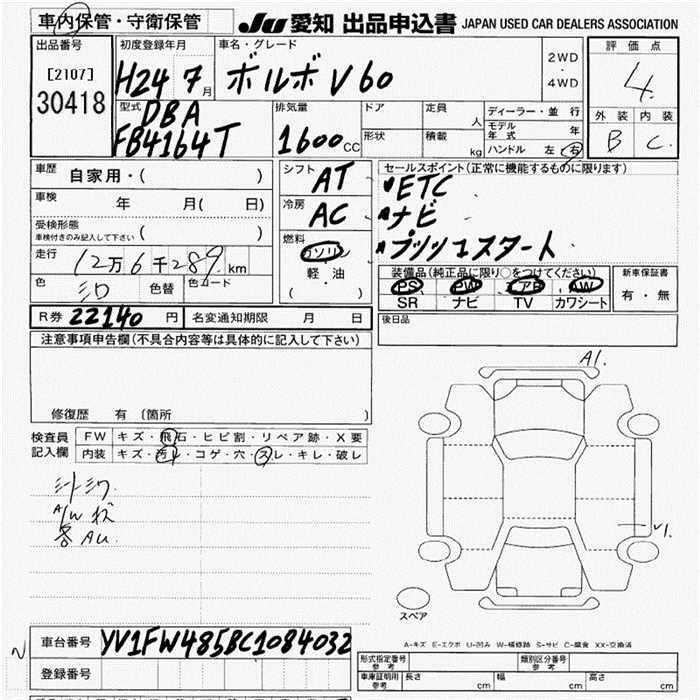 車内保管・守衛保管
JU 愛知 出品申込書 JAPAN USED CAR DEALERS ASSOCIATION
出品番号 初度登録年月 車名・グレード 評価点
[2107] H24 7月 ボルボ V60 2WD・4WD 4.
30418
型式 排気量 ドア 定員 人 ディーラー・並行 外装 内装
DBA モデル年式 年
FB4164T 1600CC 形状 積載 kg ハンドル 左 右 B C.
車歴 自家用・( ) シフト AT セールスポイント(正常に機能するものに限ります)
車検 年 月( 日) 冷房 AC ETC
受検形態 ナビ
車検付きのみ記入して下さい ( ) プッシュスタート
走行 12万6千289km 燃料 ガソリン 装備品(純正品に限り○をつけてください) 新車保証書
色 シロ 色替 色コード 軽・油 PS PW AB AW 有・無
( ) SR ナビ TV カワシート
R券 22140 円 名変通知期限 月 日 後日品
注意事項申告欄(不具合内容等は具体的に記入して下さい)
A1.
修復歴 有 (箇所 )
検査員 FW キズ・飛石・ヒビ割・リペア跡・X要
記入欄 内装 キズ・汚レ・コゲ・穴・スレ・キレ・破レ
シートシワ
A/W キズ
各AU.
V1.
スペア
A-キズ E-エクボ U-凹み W-補修跡 S-サビ C-腐食 XX-交換済
車台番号 YV1FW485BC1084032
形式指定番号 参考 類別区分番号 参考
登録番号 車庫証明用 参考 長さ cm 幅 cm 高さ cm